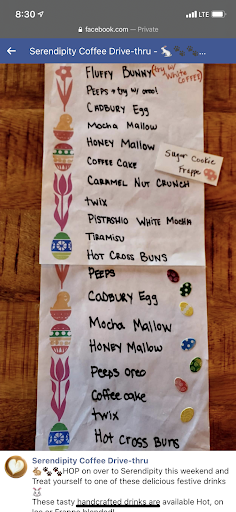 8:30
LTE
facebook.com — Private
Serendipity Coffee Drive-thru - 🐇🐾🐾...
Fluffy Bunny (try w/ White Coffee)
Peeps → try w/ oreo!
Cadbury Egg
Mocha Mallow
Honey Mallow
Coffee Cake
Sugar Cookie
Frappe
Caramel Nut Crunch
Twix
Pistashio White Mocha
Tiramisu
Hot Cross Buns
Peeps
Cadbury Egg
Mocha Mallow
Honey Mallow
Peeps Oreo
Coffee cake
Twix
Hot Cross Buns
Serendipity Coffee Drive-thru
🐇🐾🐾HOP on over to Serendipity this weekend and
Treat yourself to one of these delicious festive drinks
🐰
These tasty handcrafted drinks are available Hot, on
Ice or Frappe blended!